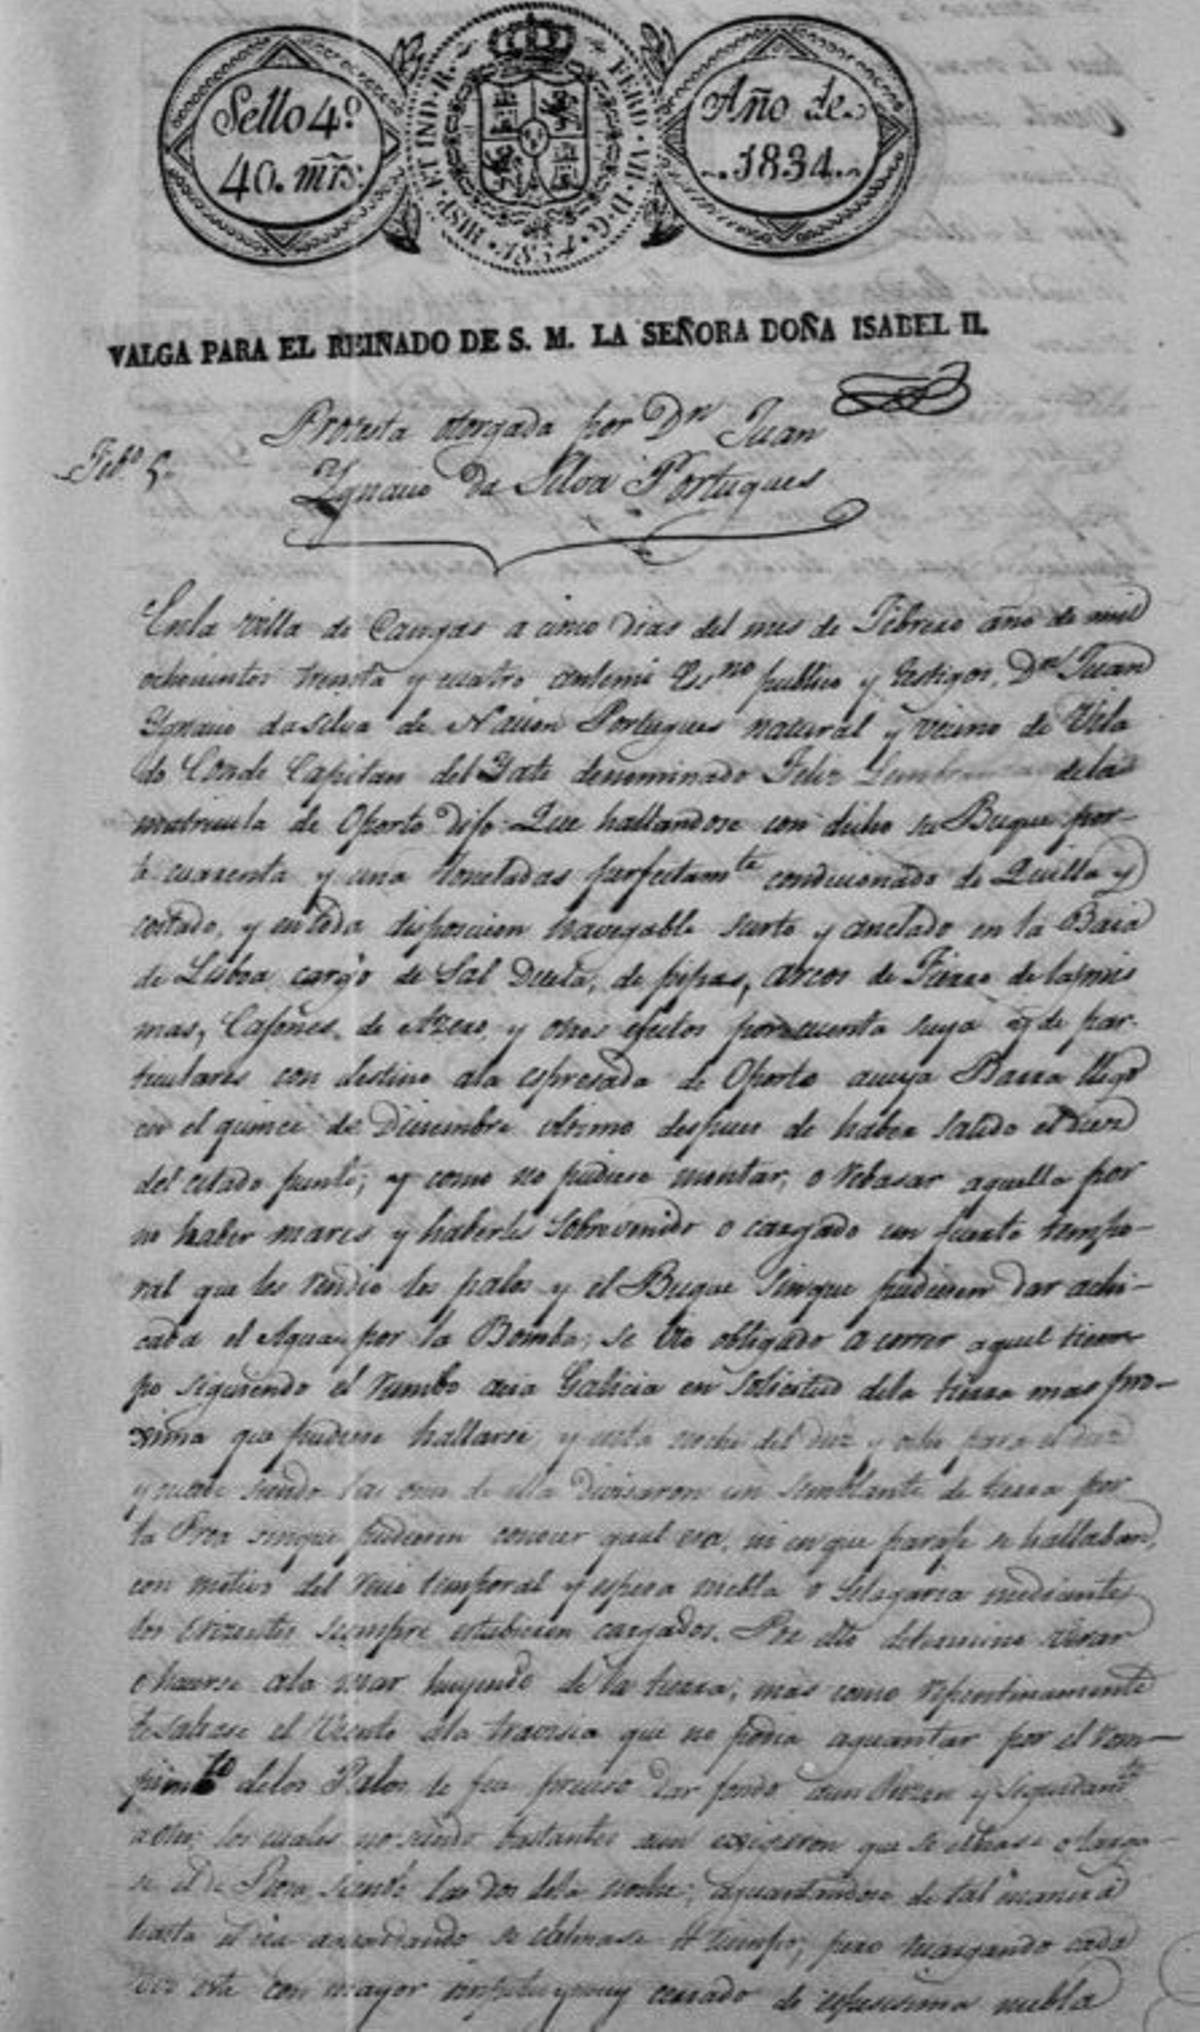 Sello 4º
40. mrs.
HISP. ET IND. R. FERD. VII. D. G.
Año de
1834
VALGA PARA EL REINADO DE S. M. LA SEÑORA DOÑA ISABEL II.
Protesta otorgada por Dn Juan
Febº 5.
Ygnacio da Silva Portugues
Enla villa de Cangas a cinco dias del mes de Febrero año de mil
ochocientos treinta y cuatro antemi Essno publico y testigos, Dn Juan
Ygnacio dasilva de Nacion Portugues natural y vecino de Vila
do Conde Capitan del Yate denominado Feliz dela
matricula de Oporto dijo: Que hallandose con dicho su Buque por-
te cuarenta y una toneladas perfectamte condicionado de Quilla y
costado, y entoda disposicion navegable surto y anclado en la Baia
de Lisboa, cargó de Sal de pipas, arcos de Fierro de lasmis
mas, Cajones de Azero, y otros efectos porcuenta suya y de par-
ticulares con destino ala espresada de Oporto acuya Barra llegó
en el quince de Diciembre ultimo despues de haber salido el diez
del citado punto; y como no pudiese montar, o rebasar aquella por
no haber mares y haberles sobrevenido o cargado un fuerte tempo-
ral que les rendio los palos y el Buque sinque pudiesen dar achi-
cada el Agua por la Bomba, se vio obligado a correr aquel tiem-
po siguiendo el rumbo acia Galicia en solicitud dela tierra mas pro-
xima que pudiese hallarse, y enla noche del diez y ocho para el diez
y nueve siendo las once de ella divisaron un semblante de tierra por
la Proa sinque pudiesen conocer qual era, ni enque paraje se hallaban,
con motivo del recio temporal y espesa niebla o mediante
los siempre estubiesen cargados. Por ello determino virar
o hacerse ala mar huyendo de la tierra; mas como repentinamente
le saltase el Viento ala travesia que no podia aguantar por el rom-
pimto delos Palos, le fue preciso dar fondo aun y seguidamte
a otro, los cuales no siendo bastantes aun exigeron que se echase o larga-
se el de Proa siendo las dos dela noche; aguantandose de tal manera
hasta el dia aguardando se el tiempo, pero recargando cada
vez este con mayor impetu y muy cerrado de espesisima niebla